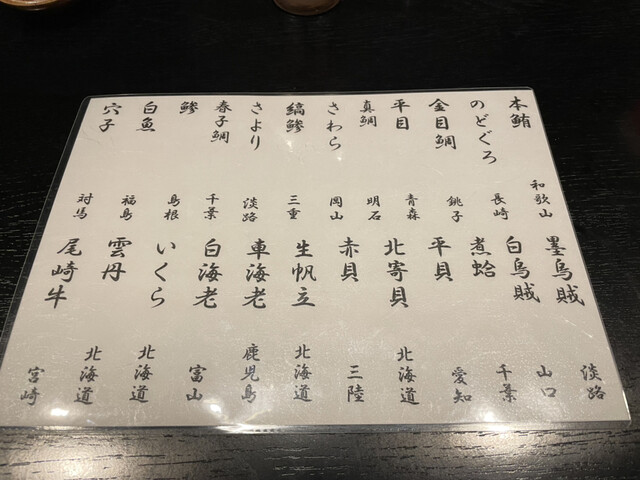 本鮪 和歌山
のどぐろ 長崎
金目鯛 銚子
平目 青森
真鯛 明石
さわら 岡山
縞鯵 三重
さより 淡路
春子鯛 千葉
鯵 島根
白魚 福島
穴子 対馬
墨烏賊 淡路
白烏賊 山口
煮蛤 千葉
平貝 愛知
北寄貝 北海道
赤貝 三陸
生帆立 北海道
車海老 鹿児島
白海老 富山
いくら 北海道
雲丹 北海道
尾崎牛 宮崎